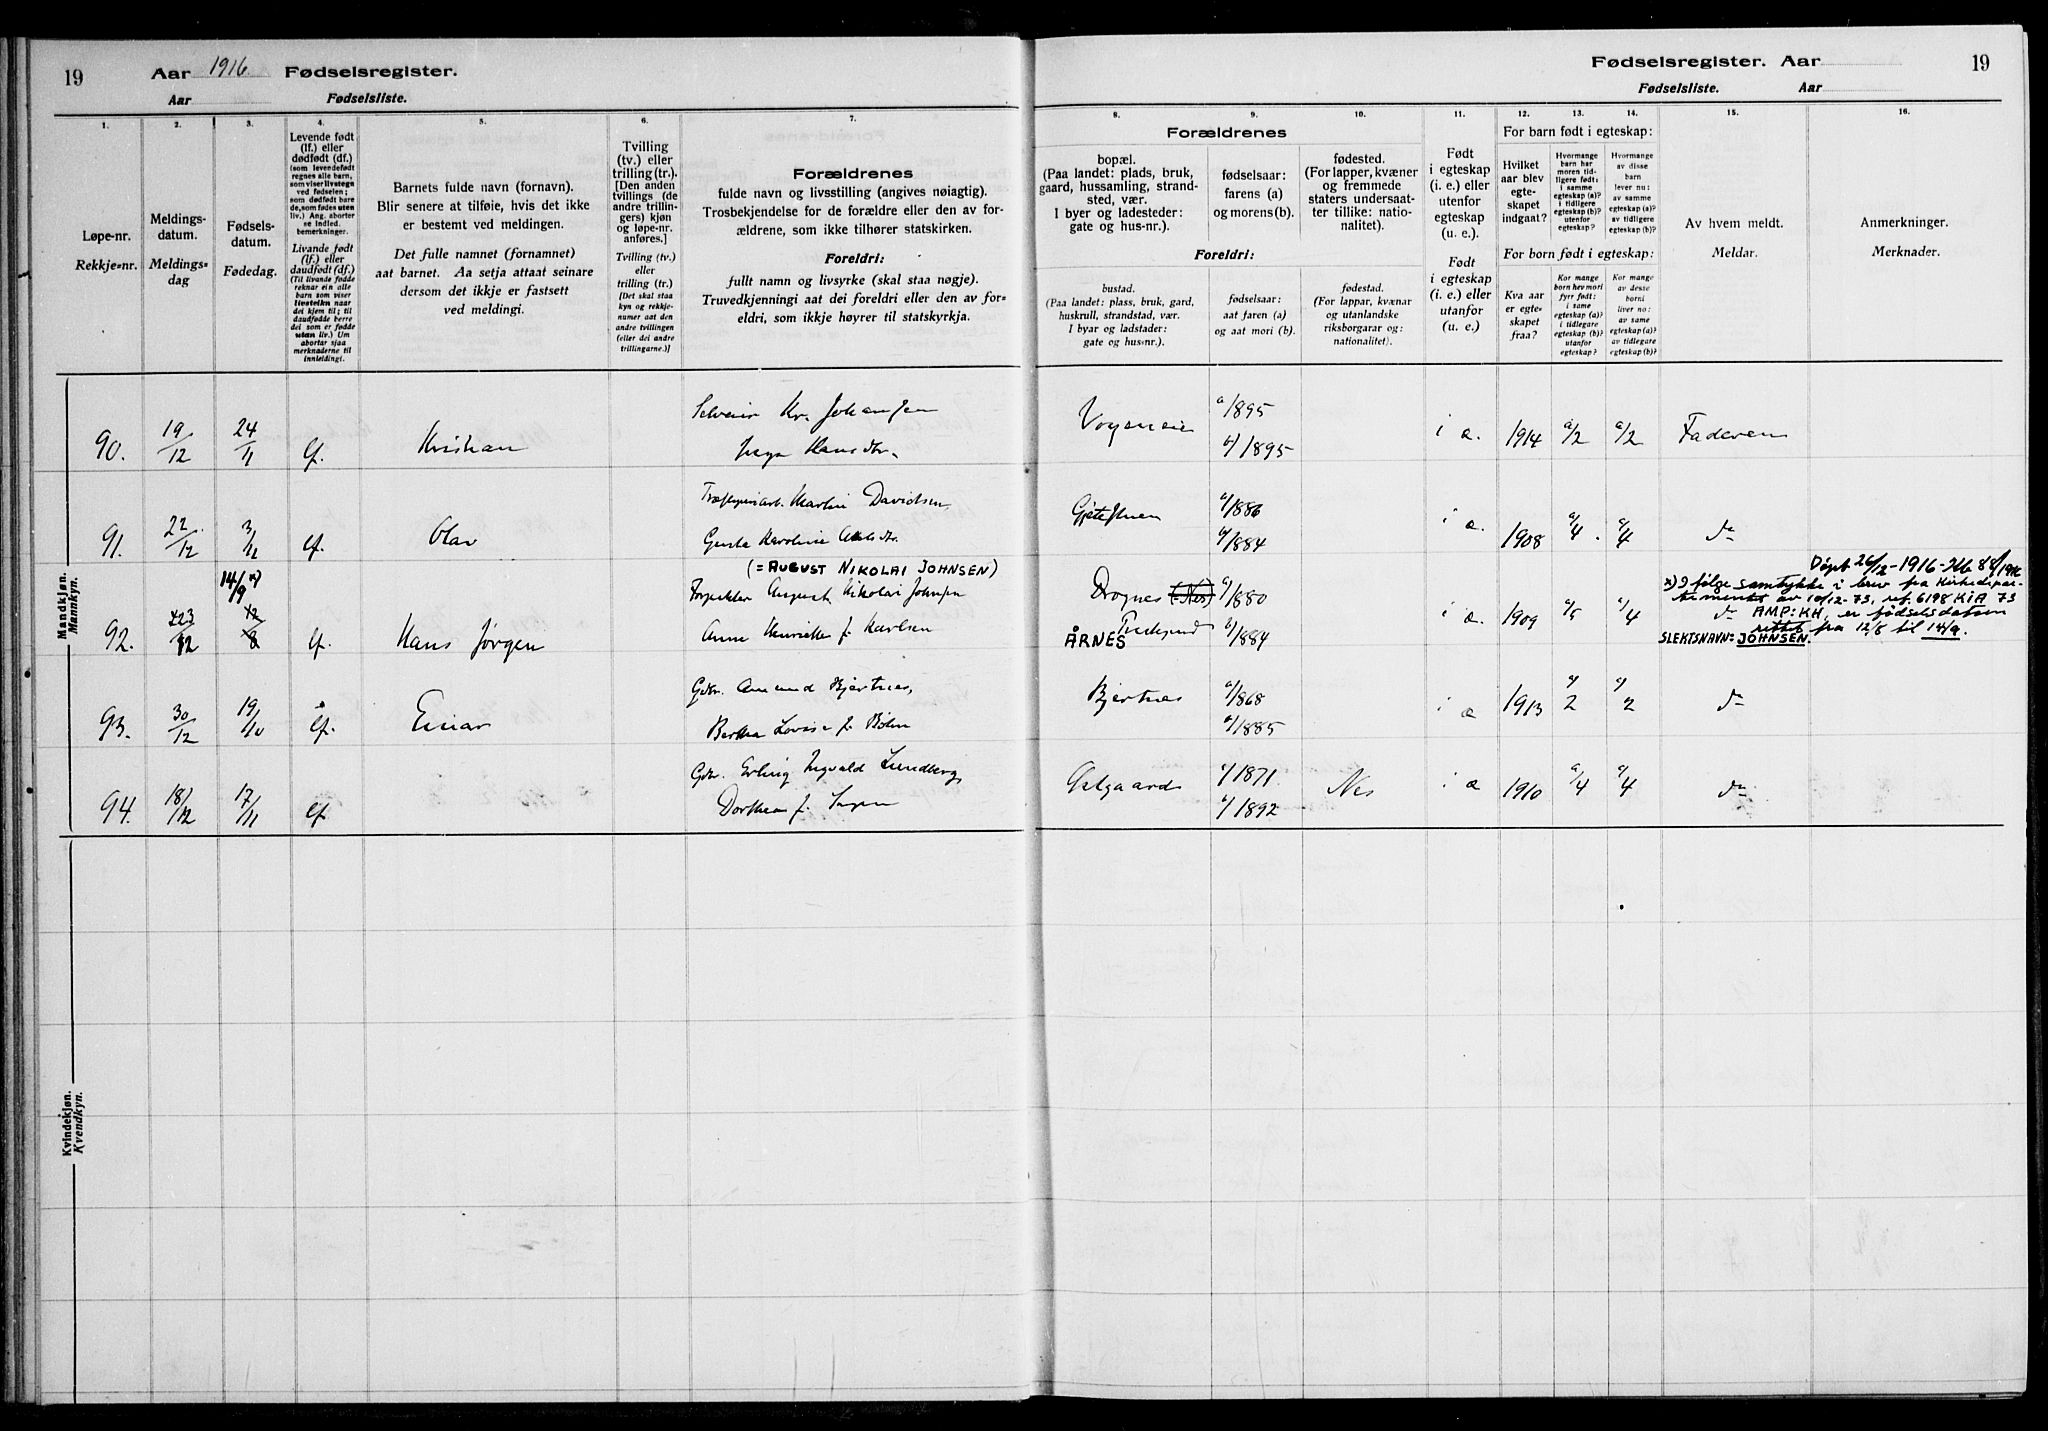 19 Aar 1916 Fødselsregister.
Aar Fødselsliste.
1.
Løpe-nr.
Rekkje=nr.
2.
Meldings-
datum.
Meldings=
dag
3.
Fødsels-
datum.
Fødedag.
4.
Levende født
(lf.) eller
dødfødt (df.)
(som levendefødt
regnes alle barn,
som viser livstegn
ved fødselen;
som dødfødt bare
de, som fødes uten
liv.) Ang. aborter
se indled.
bemerkninger.
Livande født
(lf.) eller
daudfødt (df.)
(Til livande fødde
reknar ein alle
barn som viser
livsteikn naar
dei kjem til; til
daudfødde berre
dei som er fødde
utan liv.) Um
abortar sjaa
merknaderne til
innleidingi.
5.
Barnets fulde navn (fornavn).
Blir senere at tilføie, hvis det ikke
er bestemt ved meldingen.
Det fulle namnet (fornamnet)
aat barnet. Aa setja attaat seinare
dersom det ikkje er fastsett
ved meldingi.
6.
Tvilling
(tv.) eller
trilling (tr.).
[Den anden
tvillings (de
andre trillin-
gers) kjøn
og løpe-nr.
anføres.]
Tvilling (tv.)
eller
trilling (tr.)
[Det skal staa
kyn og rekkje-
numer aat den
andre tvillingen
(eller dei andre
trillingarne.)]
7.
Forældrenes
fulde navn og livsstilling (angives nøiagtig).
Trosbekjendelse for de forældre eller den av for-
ældrene, som ikke tilhører statskirken.
Foreldri:
fullt namn og livsyrke (skal staa nøgje).
Truvedkjenningi aat dei foreldri eller den av for=
eldri, som ikkje høyrer til statskyrkja.
Fødselsregister. Aar 19
Fødselsliste. Aar
Forældrenes
8.
bopæl.
(Paa landet: plads, bruk,
gaard, hussamling, strand-
sted, vær.
I byer og ladesteder:
gate og hus-nr.).
9.
fødselsaar:
farens (a)
og morens (b).
10.
fødested.
(For lapper, kvæner
og fremmede
staters undersaat-
ter tillike: natio-
nalitet).
Foreldri:
bustad.
(Paa landet: plass, bruk, gard,
huskrull, strandstad, vær.
I byar og ladstader:
gate og hus=nr.).
fødselsaar:
aat faren (a)
og aat mori (b).
fødestad.
(For lappar, kvænar
og utanlandske
riksborgarar og:
nationalitet).
11.
Født
i egteskap
(i. e.) eller
utenfor
egteskap
(u. e.).
Født
i egteskap
(i. e.) eller
utanfor
(u. e.)
12. 13. 14.
For barn født i egteskap:
Hvilket
aar blev
egte-
skapet
indgaat?
Hvormange
barn har
moren tid-
ligere født:
i samme
egteskap (a)?
i tidligere
egteskap (b)?
utenfor
egteskap?
Hvormange
av disse
barn
lever nu:
av samme
egteskap (a)?
av tidligere
egteskap (b)?
For born født i egteskap:
Kva aar
er egte-
skapet
fraa?
Kor mange
born hev mori
fyrr født:
i same
egteskap (a)?
i tidlegare
egteskap (b)?
utanfor
egteskap?
Kor mange
av desse
borni
liver no:
av same
egteskap (a)?
av tidlegare
egteskap (b)?
15.
Av hvem meldt.
Meldar.
16.
Anmerkninger.
Merknader.
Mandkjøn.
Mannkyn.
90. 19/12 24/11 lf. Kristian Kr. Johansen a/1895 i æ. 1914 a/2 a/2 Faderen
Hansdtr. b/1895
91. 22/12 3/11 lf. Olav Martin Davidsen a/1886 i æ. 1908 a/4 a/4 do
Karoline b/1884
(= AUGUST NIKOLAI JOHNSEN) Døpt 26/12-1916-Kb 88/1916
92. 23/12 14/9 x) 12/8 lf. Hans Jørgen August Nikolai Johnsen Drognes (Nes) a/1880 i æ. 1909 a/5 a/4 do
Anna Henriette f. Karlsen ÅRNES b/1884
x) I følge samtykke i brev fra Kirkedepar-
tementet av 10/12-73, ref. 6198 KIA 73
AMP:KH, er fødselsdatoen
rettet fra 12/8 til 14/9.
SLEKTSNAVN: JOHNSEN.
93. 30/12 19/10 lf. Einar Gdbr. Amund Bjertnes, Bjertnes a/1868 i æ 1913 a/2 a/2 do
Bertha Lovise f. b/1885
94. 18/12 17/11 lf Gdbr. Erling Ingvald Lundberg a/1871 Nes i æ 1910 a/4 a/4 do
Dorthea f. b/1892
Kvindekjøn.
Kvendkyn.